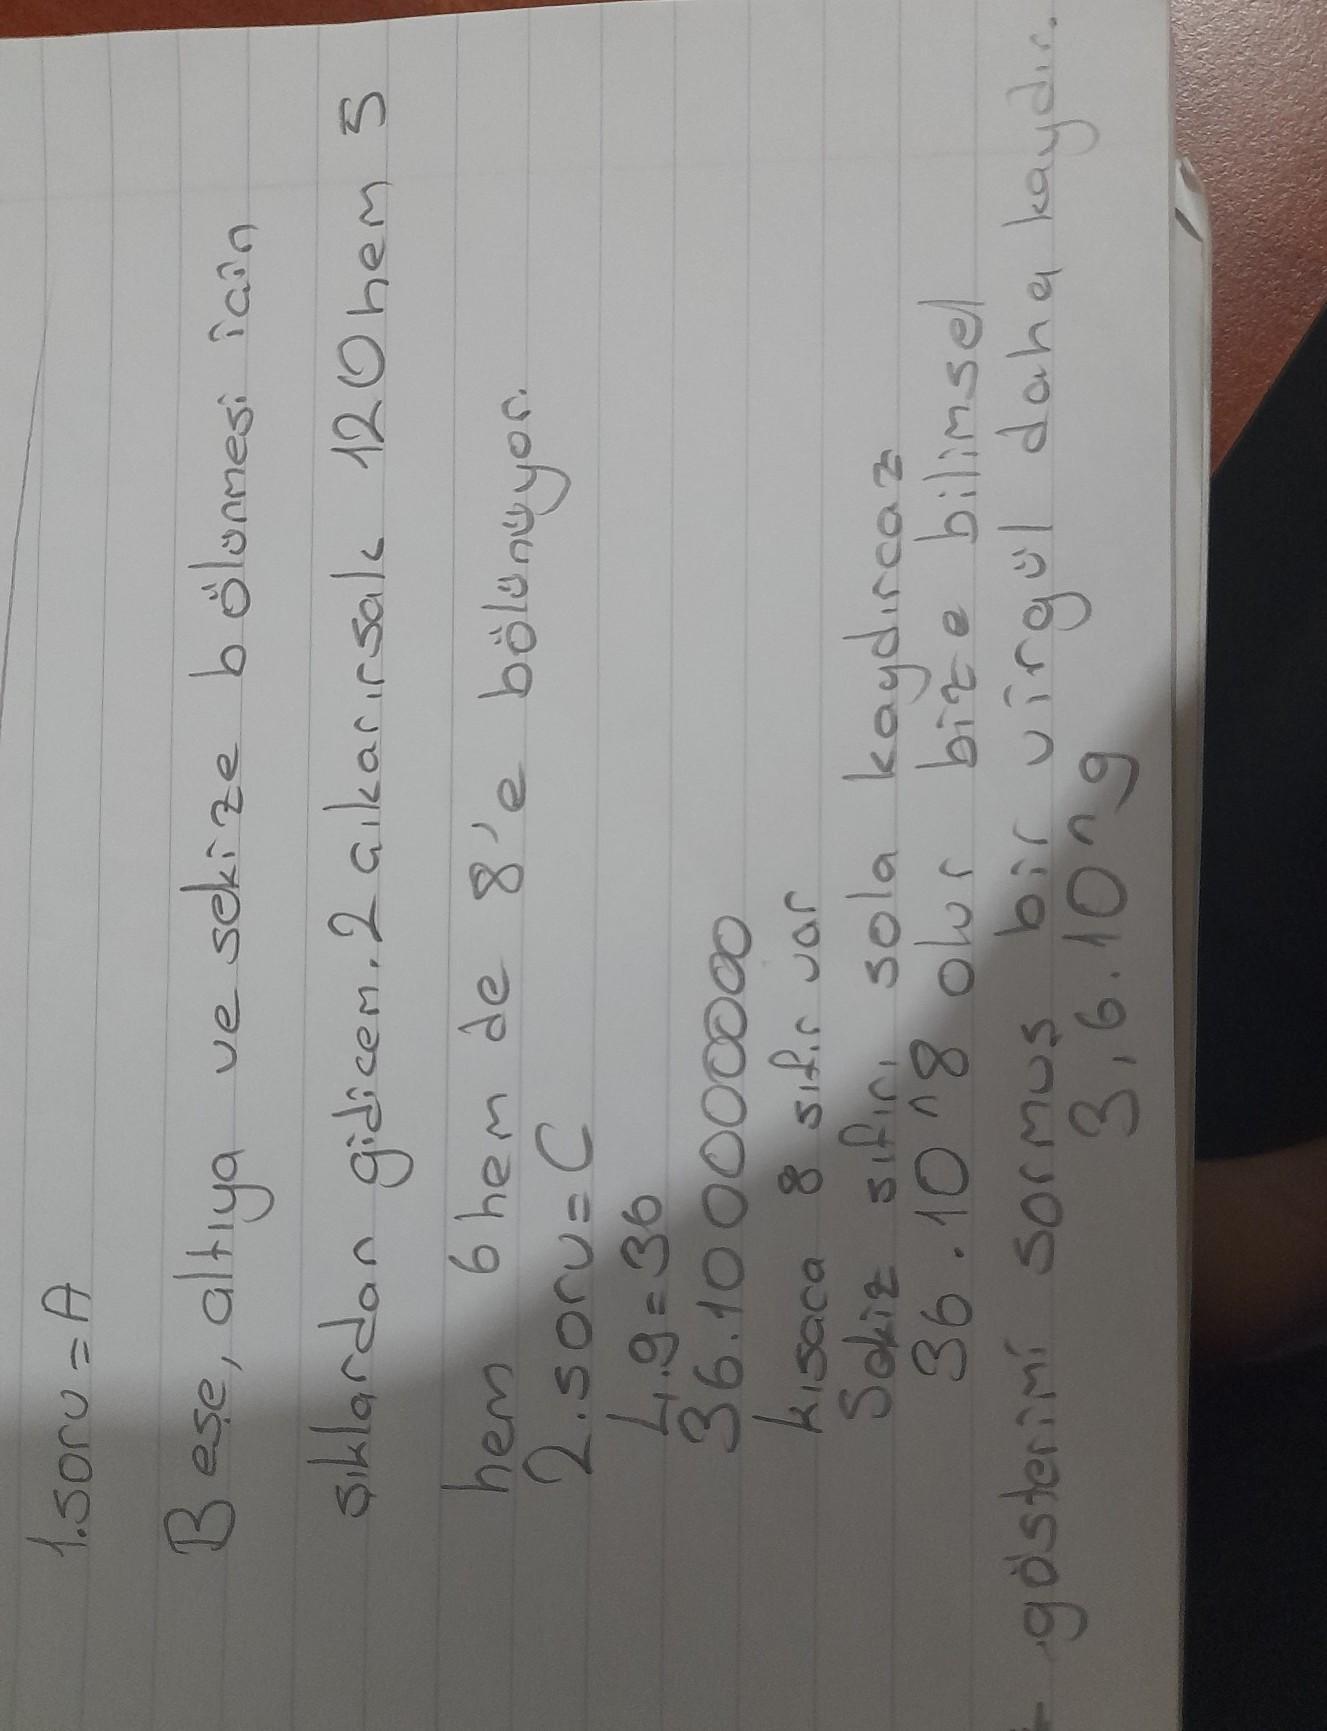 1.soru=A
Beşe, altıya ve sekize bölünmesi için
şıklardan gidicem. 2 çıkarırsak 120 hem 5
hem 6 hem de 8'e bölünüyor.
2.soru=C
4.9=36
36.100000000
kısaca 8 sıfır var
Sekiz sıfırı sola kaydırcaz
36.10^8 olur bize bilimsel
gösterimi sormuş bir virgül daha kaydır.
3,6.10^9